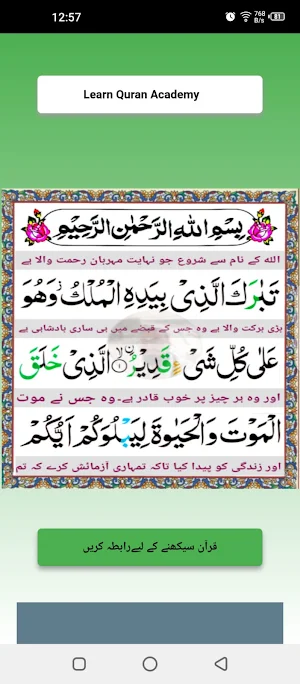 12:57
768
B/s
81
Learn Quran Academy
بِسْمِ اللهِ الرَّحْمٰنِ الرَّحِيْمِ
الله کے نام سے شروع جو نہایت مہربان رحمت والا ہے
تَبٰرَكَ الَّذِىْ بِيَدِهِ الْمُلْكُ ز وَهُوَ
بڑی برکت والا ہے وہ جس کے قبضے میں ہی ساری بادشاہی ہے
عَلٰى كُلِّ شَىْءٍ قَدِيْرُ ۙ﴿۱﴾ الَّذِىْ خَلَقَ
اور وہ ہر چیز پر خوب قادر ہے۔وہ جس نے موت
الْمَوْتَ وَالْحَيٰوةَ لِيَبْلُوَكُمْ اَيُّكُمْ
اور زندگی کو پیدا کیا تاکہ تمہاری آزمائش کرے کہ تم
قرآن سیکھنے کے لیےرابطہ کریں